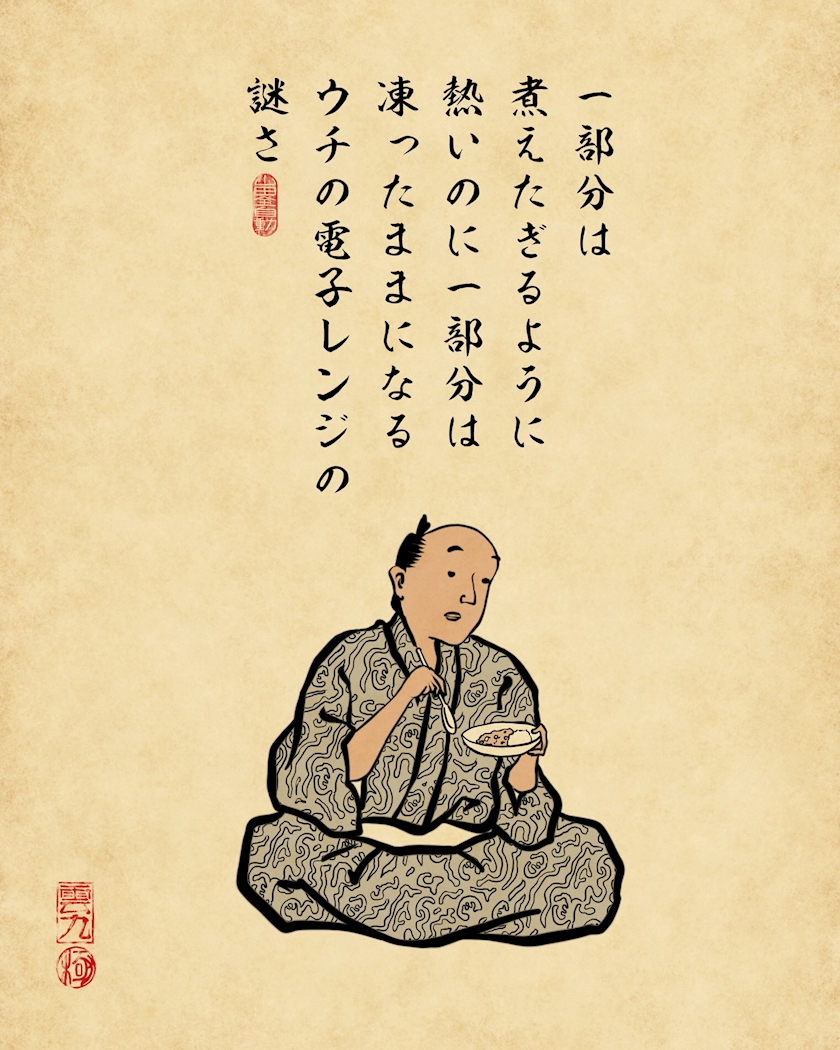 一部分は
煮えたぎるように
熱いのに一部分は
凍ったままになる
ウチの電子レンジの
謎さ